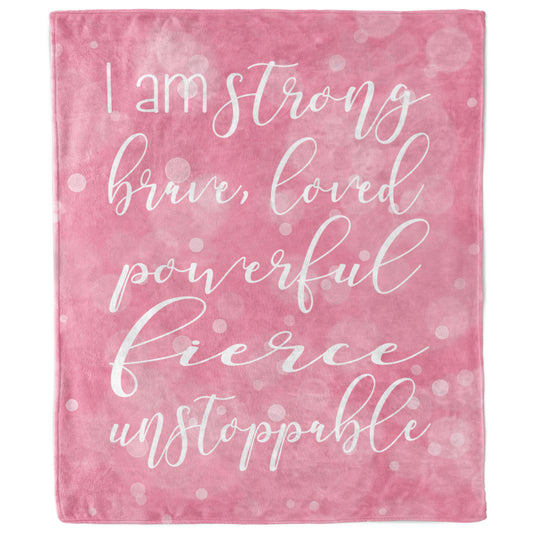 I am strong
brave, loved
powerful
fierce
unstoppable